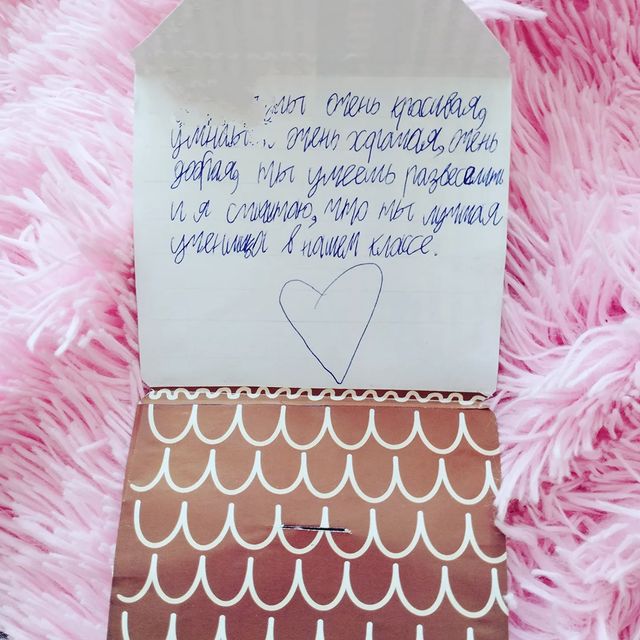 ты очень красивая,
умная и очень хорошая, очень
добрая, ты умеешь развеселить
и я считаю, что ты лучшая
ученица в нашем классе.